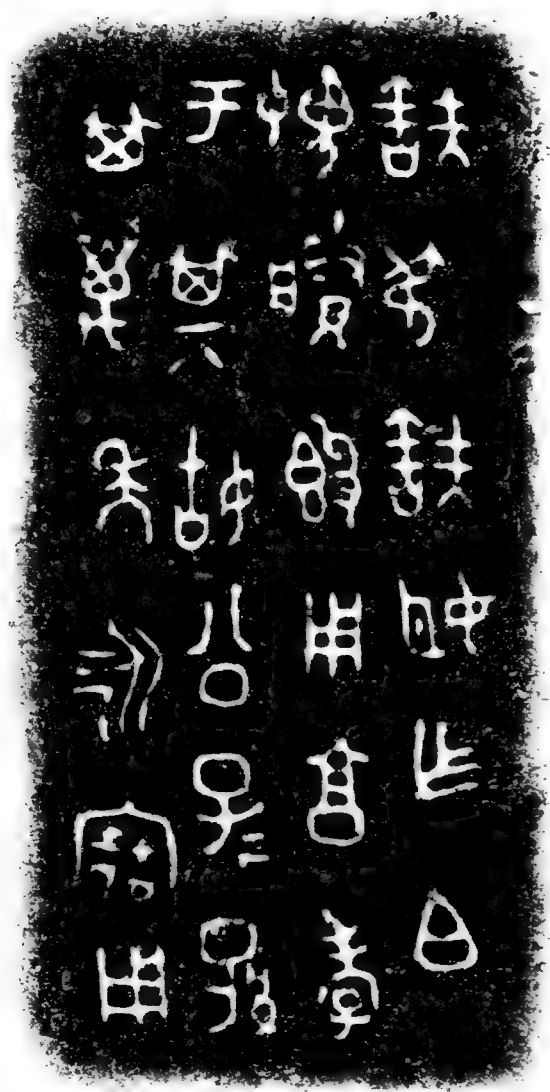 㝬叔㝬姬乍白
媿媵簋用享孝
于其姑公子=孫
其萬年永寶用